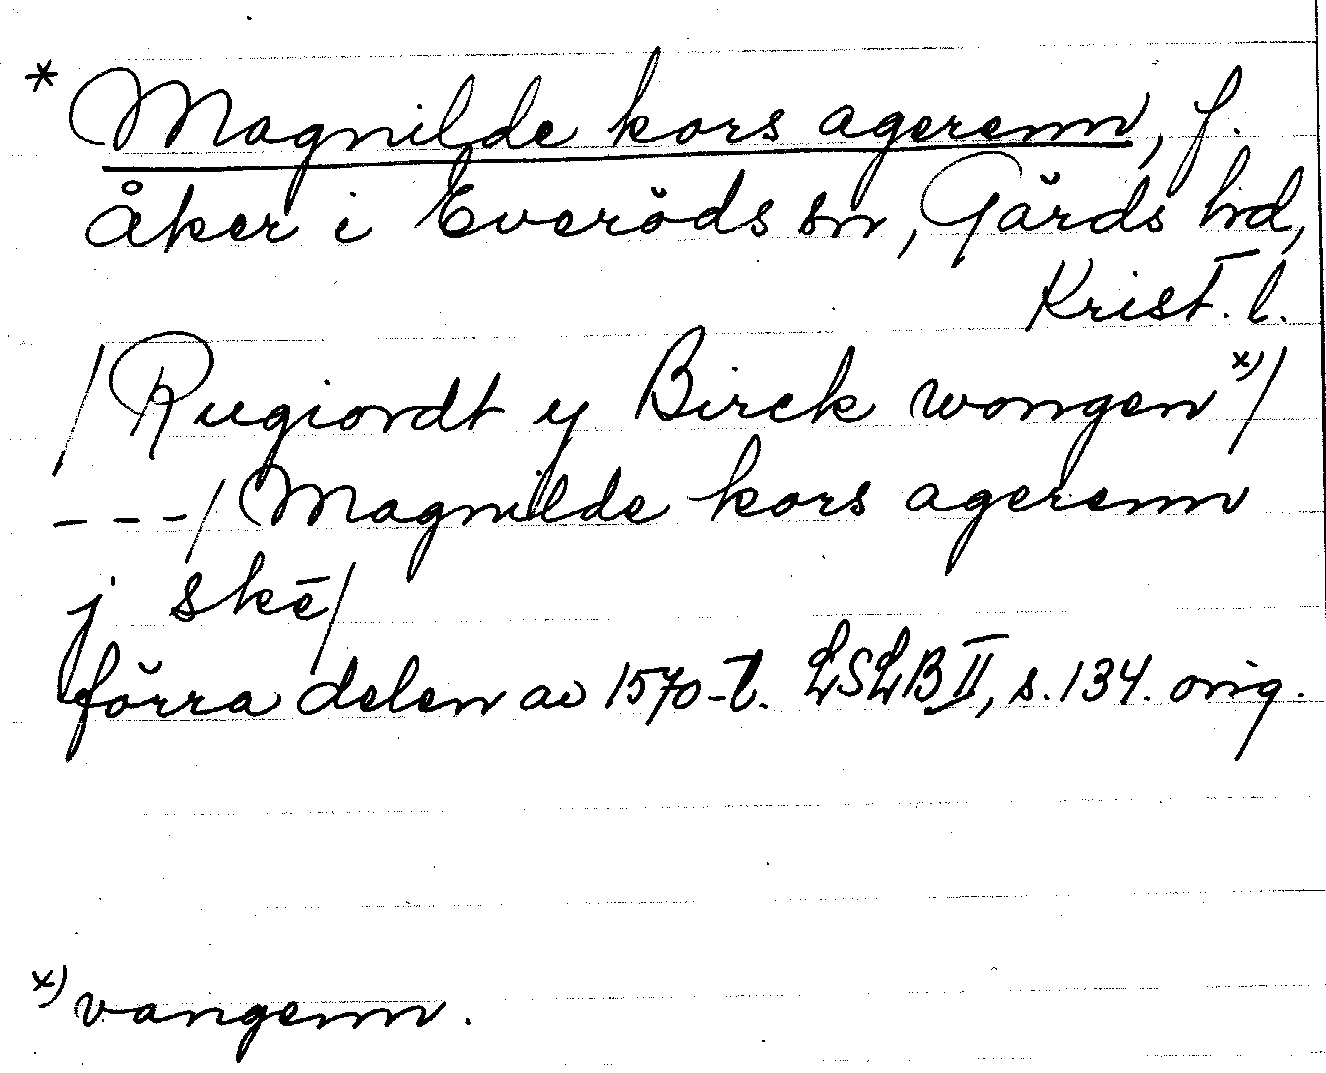 * Magnilde kors agerenn, f.
åker i Everöds sn, Gärds hd,
Krist. l.
/Rugiordt y Birck wongen x)/
---/Magnilde kors agerenn
j skē/
förra delen av 1570-t. LSLB II, s. 134. orig.
x) vangenn.